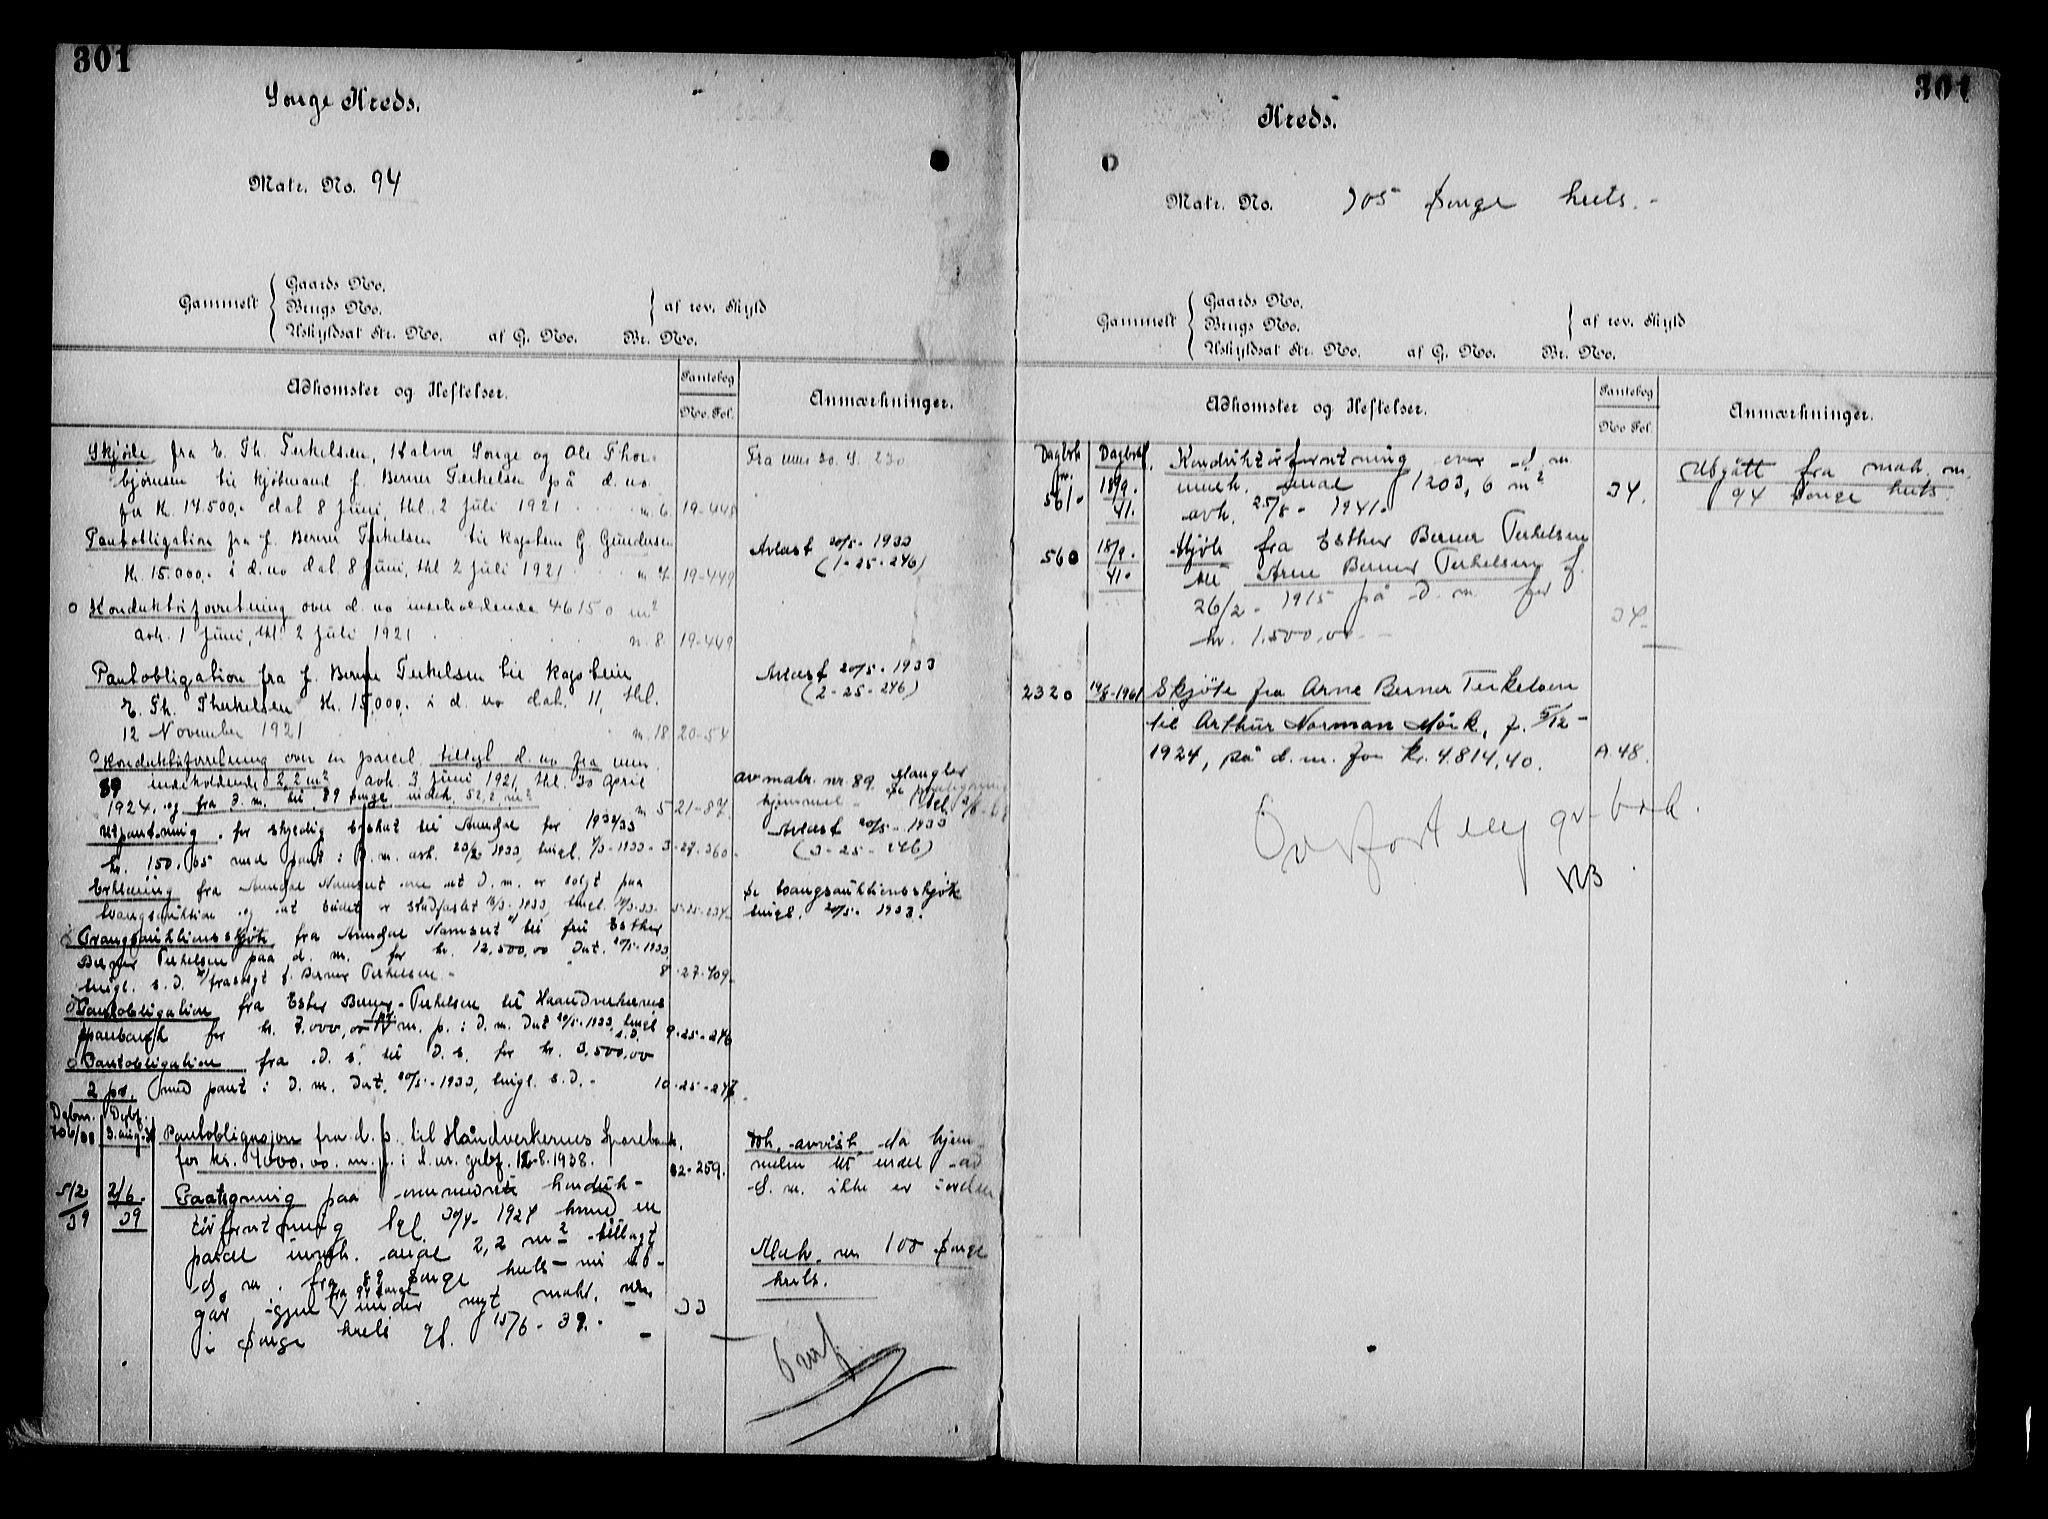 301
Songe Kreds.
Matr. No. 94
Gammelt
Gaards No.
Brugs No.
Uskyldsat Str. No. af G. No. Br. No.
af rev. Skyld
Adkomster og Heftelser.
Pantebog
No. Fol.
Anmærkninger.
Skjöte fra E. Th. Terkelsen, Halvor Songe og Ole Thor-
björnsen til kjöbmand J. Berner Terkelsen på d. no
for kr. 17.500,- dat 8 Juni, thl. 2 Juli 1921 n. 6. 19-448
Fra mnr 20. S. 230
Pantobligation fra J. Berner Terkelsen til kapstein G. Gundersen
Kr. 15.000,- i d. no dat 8 Juni, thl 2 Juli 1921 n. 7. 19-449
Avlest 20/5 - 1933
(1-25-246)
o Konduktörforretning over d. no indeholdende 4615 0 m²
avh. 1 Juni, thl. 2 Juli 1921 n. 8. 19-449
Pantobligation fra J. Berner Terkelsen til kapstein
E. Th. Therkelsen Kr. 15,000,- i d. no dat. 11, thl.
12 November 1921 n. 18 20-54
Avlest 20/5 - 1933
(2-25-246)
o Konduktörforretning over en parcel tillagt d. no fra mnr.
89 indeholdende 2,2 m² avh. 3 Juni 1921, thl. 30 April
1924. og fra d. m. til 89 Songe indeh. 52,2 m² n 5 21-87.
av matr. nr. 89. Mangler
hjemmel
Utpantning for skyldig byskat til Arendal for 1932/33
kr. 150.65 med pant i d. m. avh. 23/2 1933, tingl. 7/3-1933- 3-27-360-
Avlest 20/5 - 1933
(3-25-246)
Erklæring fra Arendal Namsret om at d. m. er solgt paa
tvangsauktion og at budet er stadfæstet 1933, tingl. 5-25-234-
se tvangsauktionsskjöte
tingl. 20/5 - 1933.
o Tvangsauktionsskjöte fra Arendal Namsret til fru Esther
Berner Terkelsen paa d. m. for kr. 12,500,00 Dat. 20/5-1933
tingl. s. D. frasolgt J. Berner Terkelsen - 8 -27-409-
o Pantobligation fra Ester Berner-Terkelsen til Haandverkernes
sparebank for kr. 7,000,00 m. p. i d. m. Dat 20/5-1933, tingl s.D. 9-25-246
o Pantobligation fra d. s. til D. s. for kr. 3,500,00
2 pr. med pant i d. m. Dat. 20/5-1933, tingl. s.D. - 10-25-247.
Dgbnr. Dgbf.
706/38 3. aug. 38 Pantobligasjon fra d. s. til Håndverkernes Sparebank,
for kr. 4000.00. m. p. i d. nr. 8.1938. 32-259.
Dok. avvist da hjem-
melen til endel av
d. m. ikke er i orden
512/39 2/6-39 Paategning paa konduk-
törforretning tgl. 30/4- 1924 hvorved en
parcel inneh. areal 2,2 m² tillagt
d. m. fra 89 Songe krets
går igjen fra 94 Songe under nytt matr. nr.
i Songe krets 15/6 - 39. - 33 -
Matr. nr. 100 Songe
krets.
301
Kreds.
Matr. No. 105 Songe krets. -
Gammelt
Gaards No.
Brugs No.
Uskyldsat Str. No. af G. No. Br. No.
af rev. Skyld
Adkomster og Heftelser.
Pantebog
No Fol.
Anmærkninger.
Dagbok nr. Dagbokf.
561- 18/9. 41. Konduktörforretning over d. m.
inneh. areal 1203, 6 m²
avh. 25/8 - 1941. 34.
Utgått fra matr. nr.
94 Songe krets.
560 18/9. 41. Skjöte fra Esther Berner Terkelsen
til Arne Berner Terkelsen f.
26/2 - 1915 på d. m. for
kr. 1.500,00 - 34-
2320 19/8-1961 Skjöte fra Arne Berner Terkelsen
til Arthur Norman Mörk, f. 5/12 -
1924, på d. m. for kr. 4.814,40. A 48.
Overfört
NB